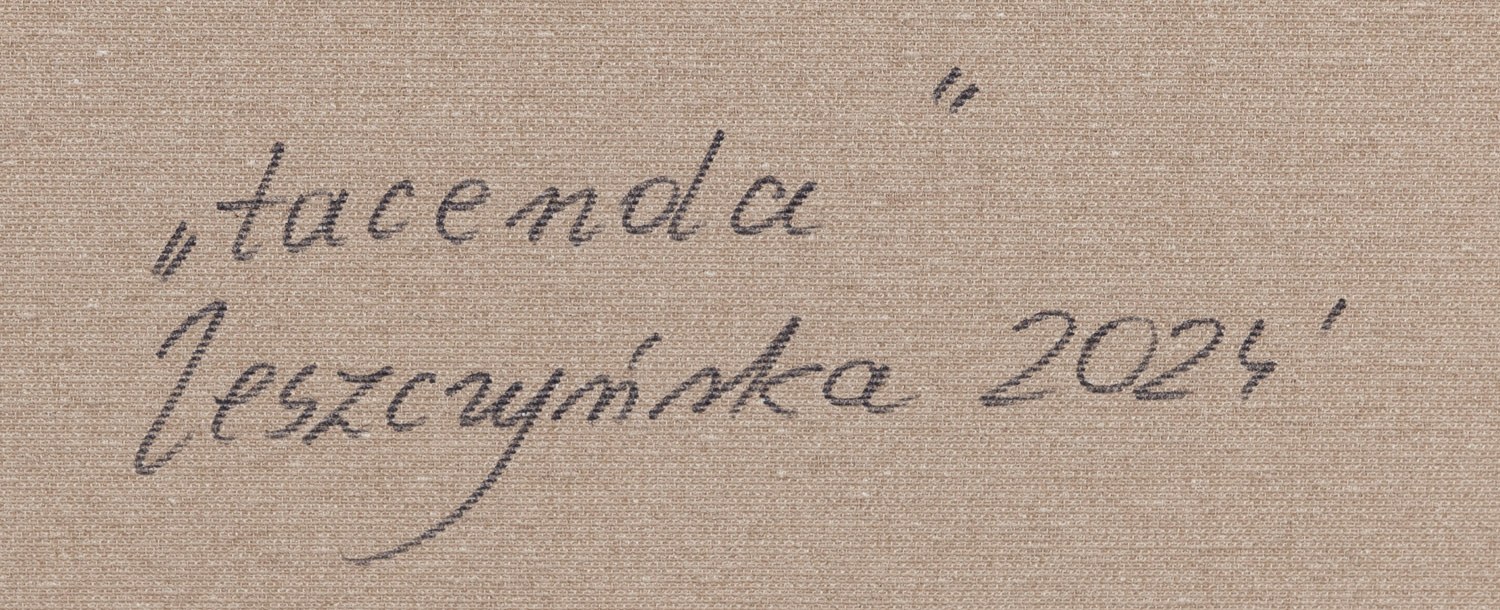 „tacenda”
Jeszczyńska 2024'